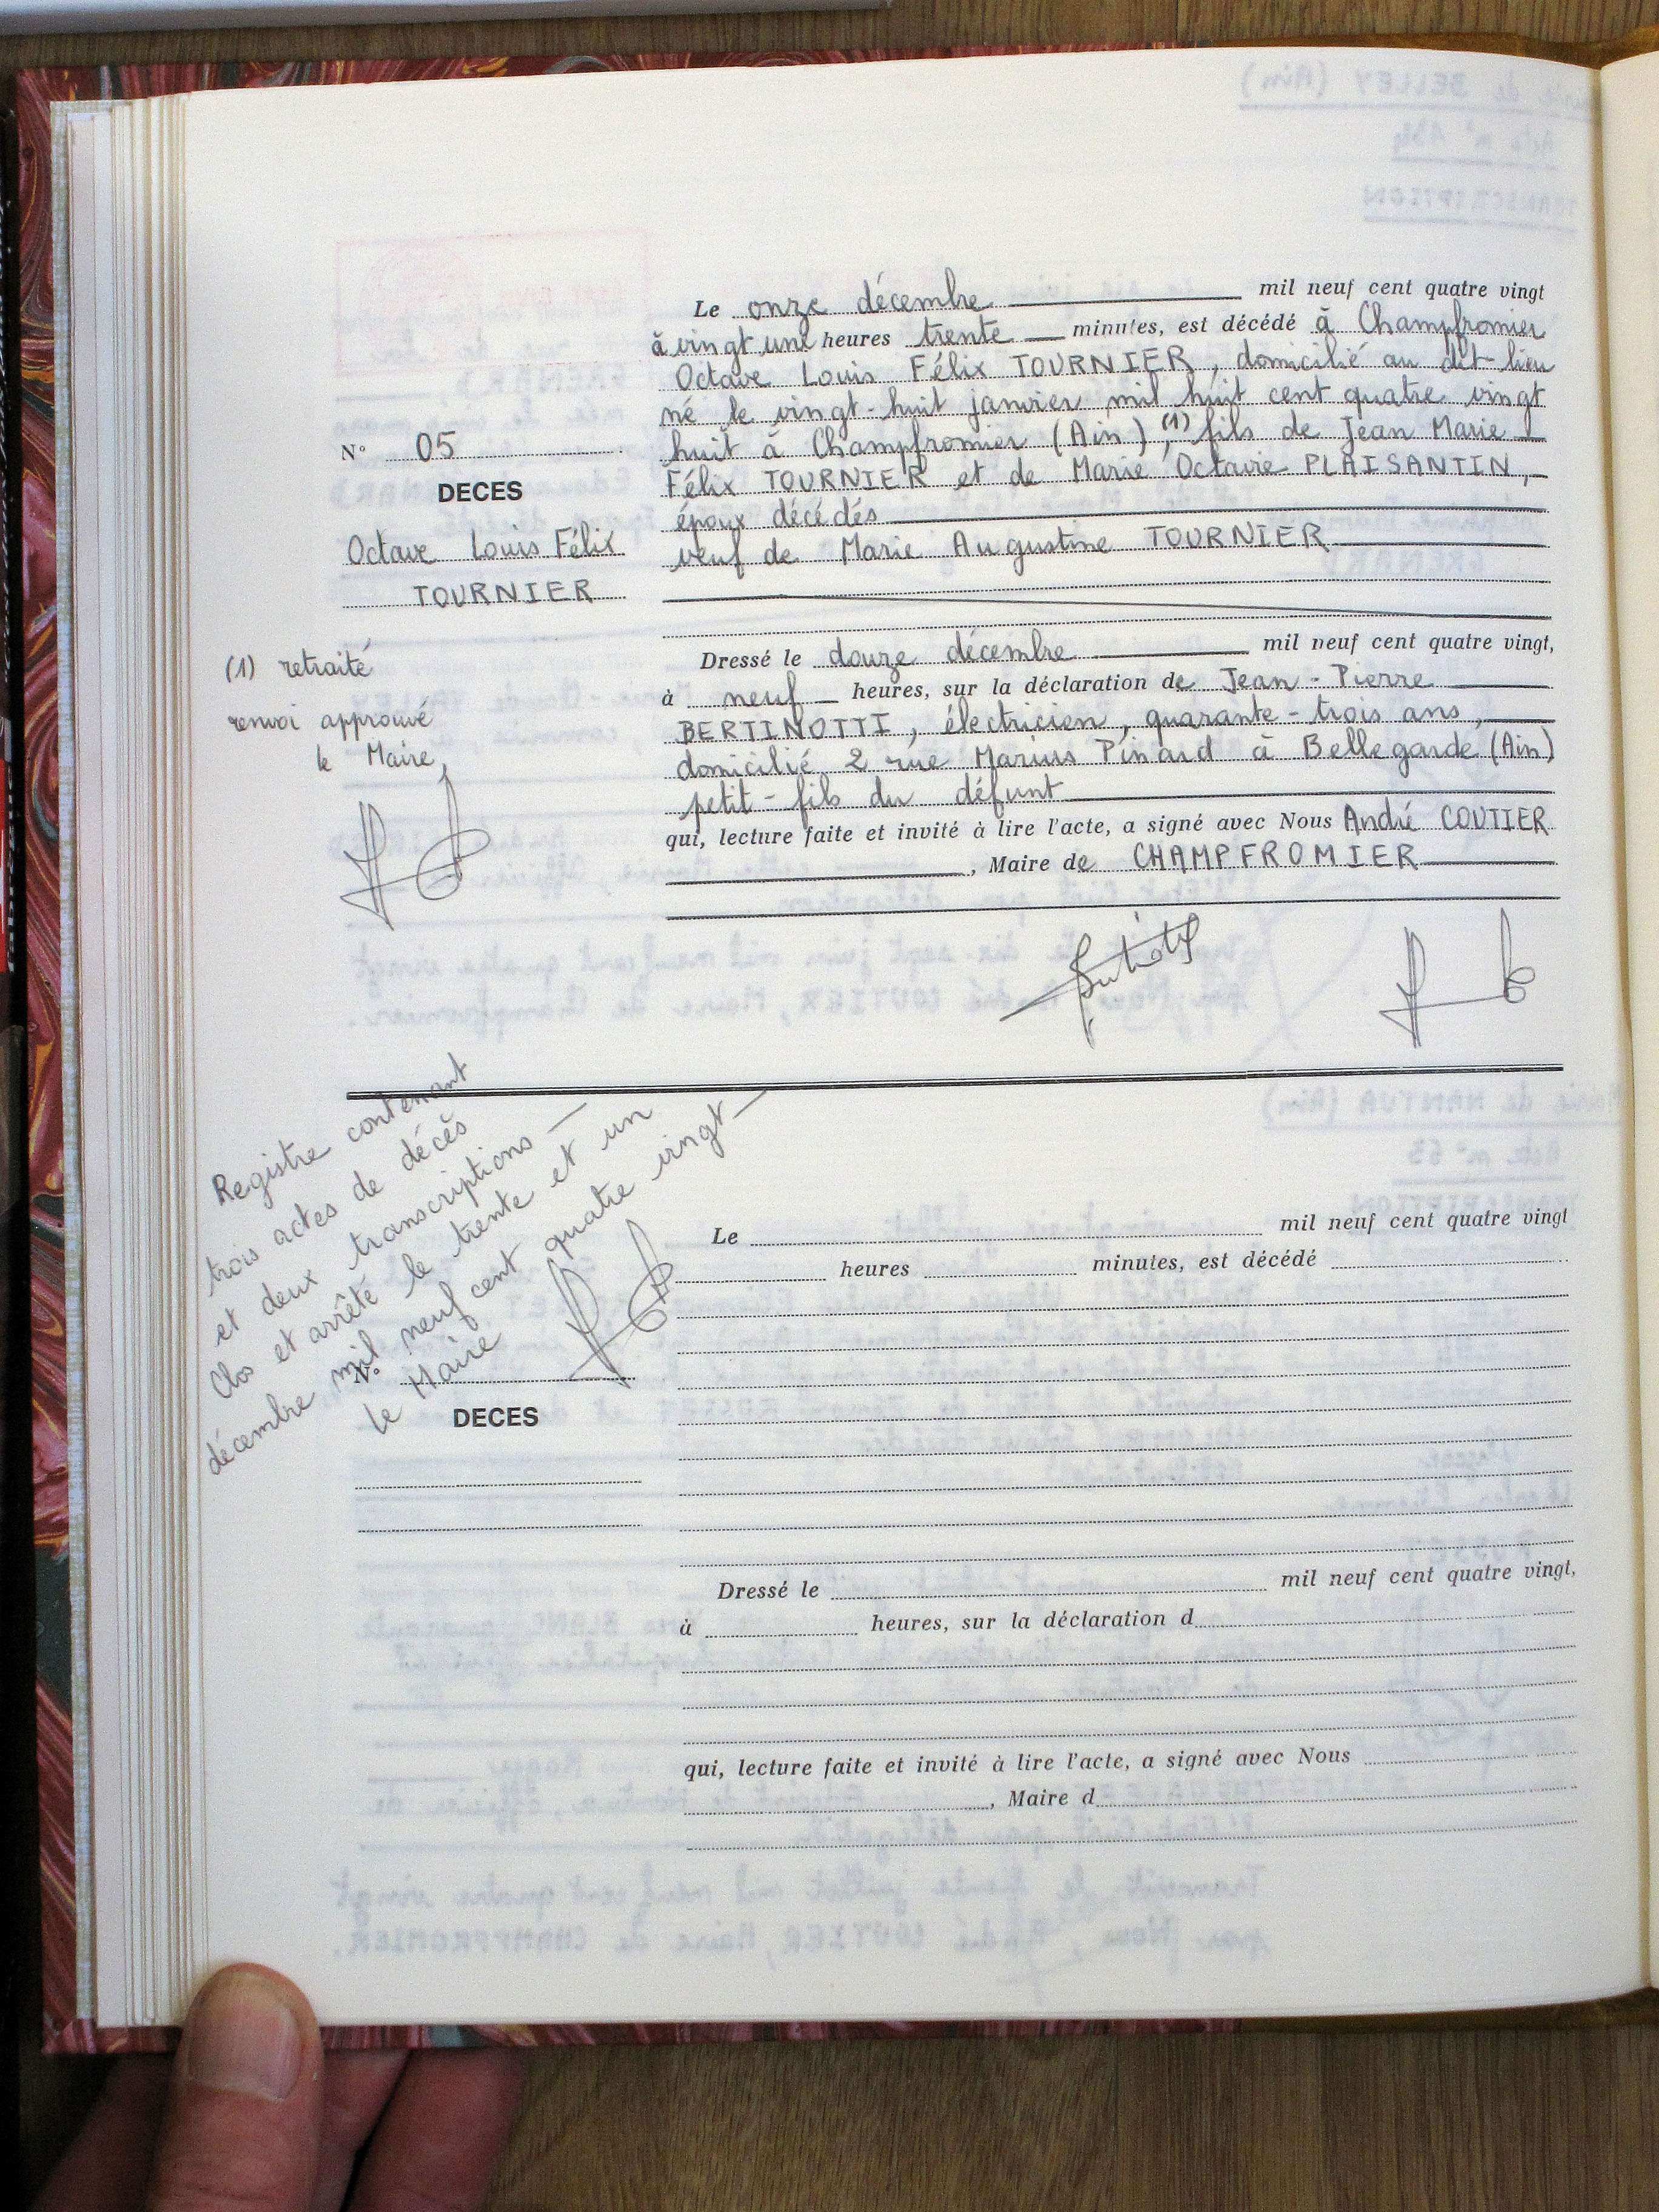 Le onze décembre mil neuf cent quatre vingt
à vingt une heures trente minutes, est décédé à Champfromier
Octave Louis Félix TOURNIER, domicilié au dit-lieu
né le vingt-huit janvier mil huit cent quatre vingt
huit à Champfromier (Ain),(1) fils de Jean Marie
Félix TOURNIER et de Marie Octavie PLAISANTIN,
époux décédés
veuf de Marie Augustine TOURNIER
N° 05
DECES
Octave Louis Félix
TOURNIER
(1) retraité
renvoi approuvé
le Maire,
Dressé le douze décembre mil neuf cent quatre vingt,
à neuf heures, sur la déclaration de Jean-Pierre
BERTINOTTI, électricien, quarante-trois ans,
domicilié 2 rue Marius Pinard à Bellegarde (Ain)
petit-fils du défunt
qui, lecture faite et invité à lire l'acte, a signé avec Nous André COUTIER
, Maire de CHAMPFROMIER
Registre contenant
trois actes de décès
et deux transcriptions
Clos et arrêté le trente et un
décembre mil neuf cent quatre vingt
le Maire
Le mil neuf cent quatre vingt
heures minutes, est décédé
N°
DECES
Dressé le mil neuf cent quatre vingt,
à heures, sur la déclaration d
qui, lecture faite et invité à lire l'acte, a signé avec Nous
, Maire d